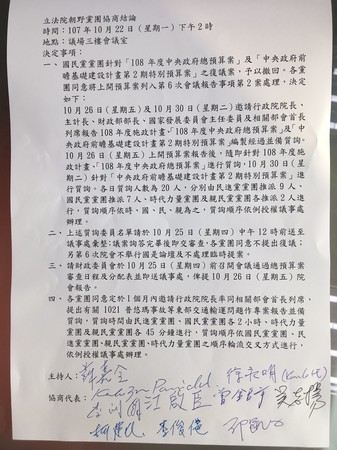 立法院朝野黨團協商結論
時間：107年10月22日（星期一）下午2時
地點：議場三樓會議室
決定事項：
一、國民黨黨團針對「108年度中央政府總預算案」及「中央政府前
瞻基礎建設計畫第2期特別預算案」之復議案，予以撤回。各黨
團同意將上開預算案列入第6次會議報告事項第2案處理，決定
如下：
10月26日（星期五）及10月30日（星期二）邀請行政院院長、
主計長、財政部部長、國家發展委員會主任委員及相關部會首長
列席報告108年度施政計畫，「108年度中央政府總預算案」及「中
央政府前瞻基礎建設計畫第2期特別預算案」編製經過並備質詢。
10月26日（星期五）上開預算案報告後，隨即針對108年度施
政計畫，「108年度中央政府總預算案」進行質詢，10月30日（星
期二）針對「中央政府前瞻基礎建設計畫第2期特別預算案」進
行質詢。各日質詢人數為20人，分別由民進黨黨團推派9人、
國民黨黨團推派7人、時代力量黨團及親民黨黨團各推派2人進
行，質詢順序依時、國、民、親為之，質詢順序依例授權議事處
辦理。
二、上述質詢委員名單請於10月25日（星期四）中午12時前送至
議事處彙整；議案詢答完畢後即交審查，各黨團同意不提出復議；
另第6次院會不舉行國是論壇及不處理臨時提案。
三、請財政委員會於10月25日（星期四）前召開會議通過總預算案
審查日程及分配表並即送議事處，俾提10月26日（星期五）院
會報告。
四、各黨團同意定於1個月內邀請行政院院長率同相關部會首長列席，
提出有關1021普悠瑪事故等東部交通輸運問題作專案報告並備
質詢，質詢時間由民進黨黨團、國民黨黨團各2小時，時代力量
黨團及親民黨黨團各45分鐘進行，質詢順序依國民黨黨團、民
進黨黨團、親民黨黨團、時代力量黨團之順序輪流交叉方式進行，
依例授權議事處辦理。
主持人：蘇嘉全
協商代表：
江啟臣
柯建民 李俊俋